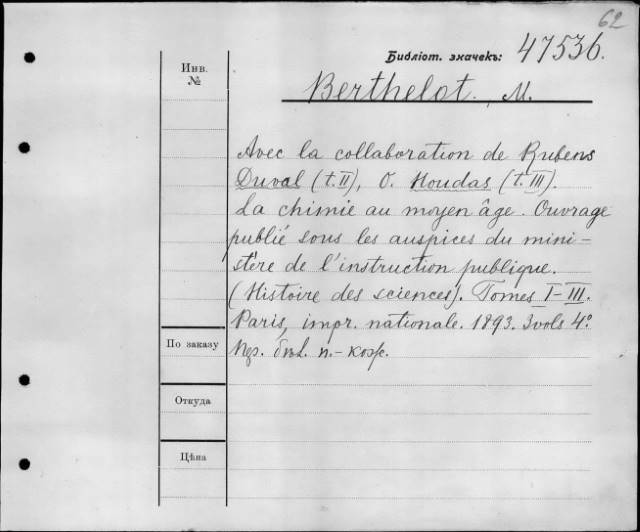 62
Библіот. значекъ: 47536.
Инв.
№
Berthelot, M.
Avec la collaboration de Rubens
Duval (t. II), O. Houdas (t. III).
La chimie au moyen âge. Ouvrage
publié sous les auspices du mini-
stère de l'instruction publique.
(Histoire des sciences). Tomes I-III.
Paris, impr. nationale. 1893. 3 vols 4º
п.-кож.
По заказу
Откуда
Цѣна